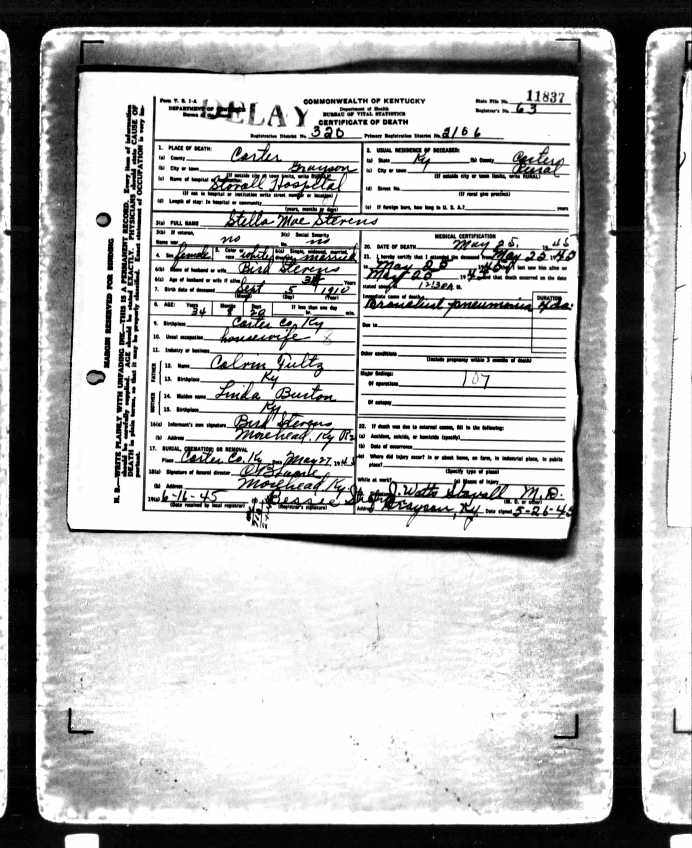 Form V. S. 1-A
DELAY
COMMONWEALTH OF KENTUCKY
Department of Health
BUREAU OF VITAL STATISTICS
CERTIFICATE OF DEATH
State File No. 11837
Registrar's No. 63
Registration District No. 320 Primary Registration District No. 2106
MARGIN RESERVED FOR BINDING
N. B.—WRITE PLAINLY WITH UNFADING INK—THIS IS A PERMANENT RECORD. Every item of information
should be carefully supplied. AGE should be stated EXACTLY. PHYSICIANS should state CAUSE OF
DEATH in plain terms, so that it may be properly classified. Exact statement of OCCUPATION is very im-
portant.
1. PLACE OF DEATH:
(a) County Carter
(b) City or town Grayson
(If outside city or town limits, write RURAL)
(c) Name of hospital Stovall Hospital
(If not in hospital or institution write street number or location)
(d) Length of stay: In hospital or community
(years, months or days)
2. USUAL RESIDENCE OF DECEASED:
(a) State Ky (b) County Carter
(c) City or town Rural
(If outside city or town limits, write RURAL)
(d) Street No.
(If rural give precinct)
(e) If foreign born, how long in U. S. A.? years
3(a) FULL NAME Stella Mae Stevens
3(b) If veteran, Name war no
3(c) Social Security No. no
4. Sex female 5. Color or race white 6(a) Single, widowed, married, divorced married
6(b) Name of husband or wife Bird Stevens
6(c) Age of husband or wife if alive Years
7. Birth date of deceased Sept 5 1910
(Month) (Day) (Year)
8. AGE: Years 34 Months 8 Days 20 If less than one day hr. min.
9. Birthplace Carter Co. Ky
10. Usual occupation housewife
11. Industry or business
FATHER
12. Name Calvin Fultz
13. Birthplace Ky
MOTHER
14. Maiden name Linda Burton
15. Birthplace Ky
16(a) Informant's own signature Bird Stevens
(b) Address Morehead, Ky
17. BURIAL, CREMATION OR REMOVAL
Place Carter Co. Ky Date May 27, 1945
18(a) Signature of funeral director
(b) Address Morehead Ky
19(a) 6-16-45 Bessie
(Date received by local registrar) (Registrar's signature)
MEDICAL CERTIFICATION
20. DATE OF DEATH May 25, 1945
21. I hereby certify that I attended the deceased from May 22 45
to May 25 1945 that I last saw him alive on
May 25 1945 and that death occurred on the date
stated above at 12:30A M.
Immediate cause of death DURATION
Bronchial pneumonia 4 da.
Due to
Other conditions
(Include pregnancy within 3 months of death)
Major findings:
107
Of operations
Of autopsy
22. If death was due to external causes, fill in the following:
(a) Accident, suicide, or homicide (specify)
(b) Date of occurrence
(c) Where did injury occur? In or about home, on farm, in industrial place, in public
place?
(Specify type of place)
While at work? (e) Means of injury
J. Watts Stovall M. D.
(M. D. or other)
Address Grayson, Ky. Date signed 5-26-45